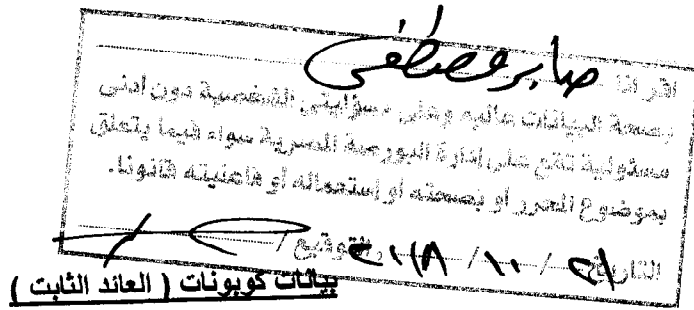 اقر انا صابر مصطفى
بصحة البيانات عاليه وعلى مسؤليتى الشخصية دون ادنى
مسئولية تقع على إدارة البورصة المصرية سواء فيما يتعلق
بموضوع المحرر او بصحته او إستعماله او فاعليته قانونا.
التاريخ ٢١ / ١٠ / ٢٠١٨ التوقيع /
بيانات كوبونات ( العائد الثابت )